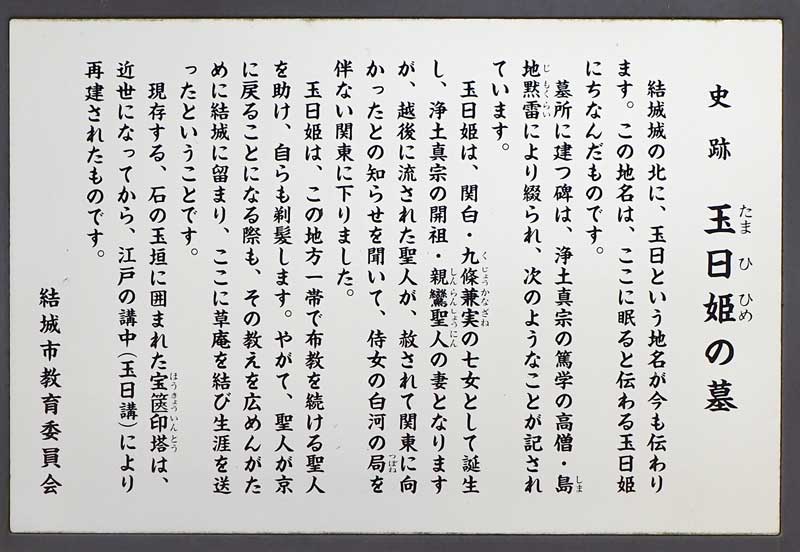 史跡 玉日姫の墓
たま ひ ひめ
結城城の北に、玉日という地名が今も伝わり
ます。この地名は、ここに眠ると伝わる玉日姫
にちなんだものです。
墓所に建つ碑は、浄土真宗の篤学の高僧・島
しま
地黙雷により綴られ、次のようなことが記され
じ もくらい
ています。
玉日姫は、関白・九條兼実の七女として誕生
く じょうかなざね
し、浄土真宗の開祖・親鸞聖人の妻となります
しんらんしょうにん
が、越後に流された聖人が、赦されて関東に向
かったとの知らせを聞いて、侍女の白河の局を
つぼね
伴ない関東に下りました。
玉日姫は、この地方一帯で布教を続ける聖人
を助け、自らも剃髪します。やがて、聖人が京
に戻ることになる際も、その教えを広めんがた
めに結城に留まり、ここに草庵を結び生涯を送
ったということです。
現存する、石の玉垣に囲まれた宝篋印塔は、
ほうきょういんとう
近世になってから、江戸の講中(玉日講)により
再建されたものです。
結城市教育委員会